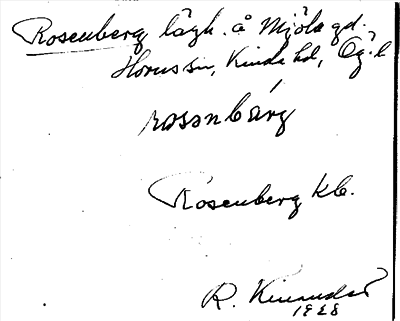 Rosenberg lägh. å Mjölsgd.
Horns sn, Kinda hd, Ög. l
rosənbärg
Rosenberg kb.
R. Kinander
1928